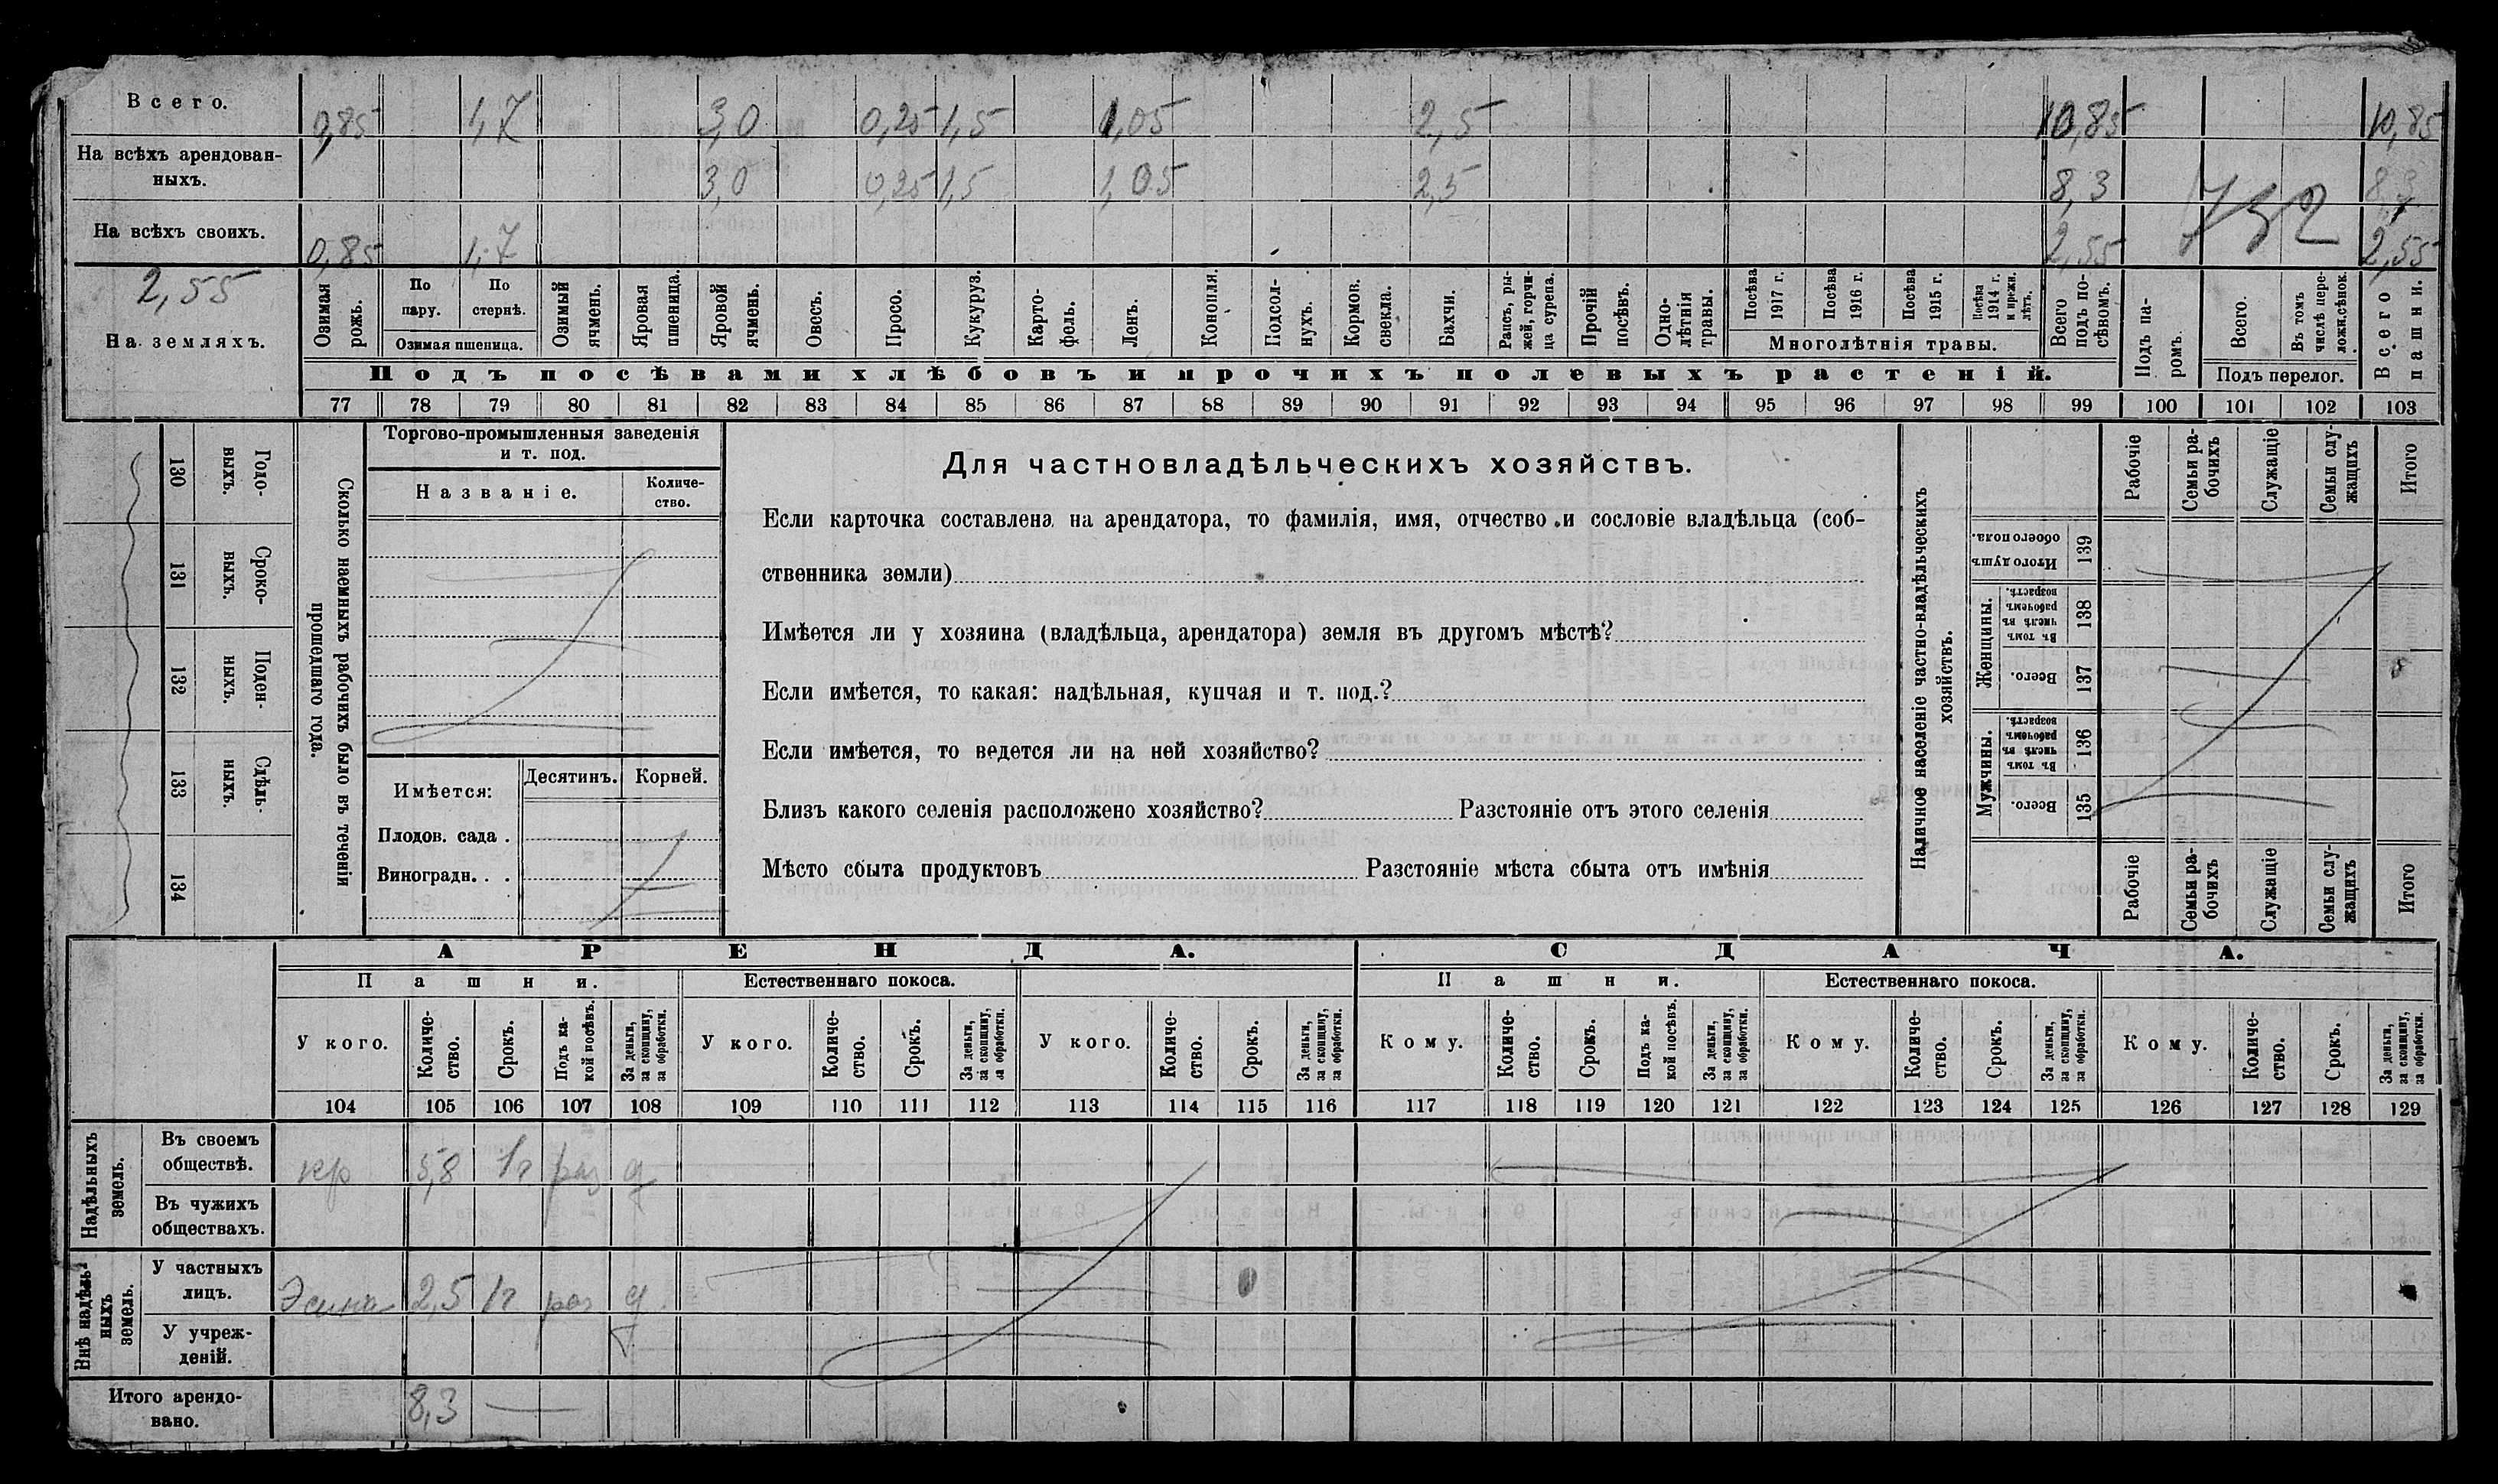 Всего. 0,85 1,7 3,0 0,25 1,5 1,05 2,5 10,85 10,85
На всѣхъ арендован-
ныхъ. 3,0 0,25 1,5 1,05 2,5 8,3 8,3
На всѣхъ своихъ. 0,85 1,7 2,55 2,55
752
2,55
На земляхъ.
Озимая рожь.
По пару.
По стернѣ.
Озимая пшеница.
Озимый ячмень.
Яровая пшеница.
Яровой ячмень.
Овесъ.
Просо.
Кукуруз.
Карто-
фель.
Ленъ.
Конопля.
Подсол-
нухъ.
Кормов. свекла.
Бахчи.
Рапсъ, ры-
жей, горчи-
ца сурепа.
Прочій посѣвъ.
Одно-
лѣтнія травы.
Посѣва 1917 г.
Посѣва 1916 г.
Посѣва 1915 г.
Посѣва 1914 г. и прежн. лѣтъ.
Многолѣтнія травы.
Всего подъ по-
сѣвомъ.
Подъ па-
ромъ.
Всего.
Въ томъ числѣ пере-
ложн. сѣнок.
Подъ перелог.
Всего пашни.
Подъ посѣвами хлѣбовъ и прочихъ полевыхъ растеній.
77 78 79 80 81 82 83 84 85 86 87 88 89 90 91 92 93 94 95 96 97 98 99 100 101 102 103
Сколько наемныхъ рабочихъ было въ теченіи
прошедшаго года.
Годо-
выхъ.
130
Сроко-
выхъ.
131
Поден-
ныхъ.
132
Сдѣль-
ныхъ.
133
134
Торгово-промышленныя заведенія
и т. под.
Названіе.
Количе-
ство.
Имѣется:
Десятинъ. Корней.
Плодов. сада .
Виноградн. . .
Для частновладѣльческихъ хозяйствъ.
Если карточка составлена на арендатора, то фамилія, имя, отчество и сословіе владѣльца (соб-
ственника земли)
Имѣется ли у хозяина (владѣльца, арендатора) земля въ другомъ мѣстѣ?
Если имѣется, то какая: надѣльная, купчая и т. под.?
Если имѣется, то ведется ли на ней хозяйство?
Близъ какого селенія расположено хозяйство? Разстояніе отъ этого селенія
Мѣсто сбыта продуктовъ Разстояніе мѣста сбыта отъ имѣнія
Наличное населеніе частно-владѣльческихъ
хозяйствъ.
Рабочіе
Семьи ра-
бочихъ
Служащіе
Семьи слу-
жащихъ
Итого
Итого душъ обоего пола.
139
Женщины.
Въ томъ числѣ въ рабочемъ возрастѣ.
138
Всего.
137
Мужчины.
Въ томъ числѣ въ рабочемъ возрастѣ.
136
Всего.
135
Рабочіе
Семьи ра-
бочихъ
Служащіе
Семьи слу-
жащихъ
Итого
АРЕНДА. СДАЧА.
Пашни. Естественнаго покоса. Пашни. Естественнаго покоса.
У кого.
Количе-
ство.
Срокъ.
Подъ ка-
кой посѣвъ.
За деньги,
за скопщину,
за обработки.
У кого.
Количе-
ство.
Срокъ.
За деньги,
за скопщину,
за обработки.
У кого.
Количе-
ство.
Срокъ.
За деньги,
за скопщину,
за обработки.
Кому.
Количе-
ство.
Срокъ.
Подъ ка-
кой посѣвъ.
За деньги,
за скопщину,
за обработки.
Кому.
Количе-
ство.
Срокъ.
За деньги,
за скопщину,
за обработки.
Кому.
Количе-
ство.
Срокъ.
За деньги,
за скопщину,
за обработки.
104 105 106 107 108 109 110 111 112 113 114 115 116 117 118 119 120 121 122 123 124 125 126 127 128 129
Надѣльныхъ
земель.
Въ своемъ
обществѣ. кр 5,8 1г раз д
Въ чужихъ
обществахъ.
Внѣ надѣль-
ныхъ
земель.
У частныхъ
лицъ. 2,5 1г раз д
У учреж-
деній.
Итого арендо-
вано. 8,3